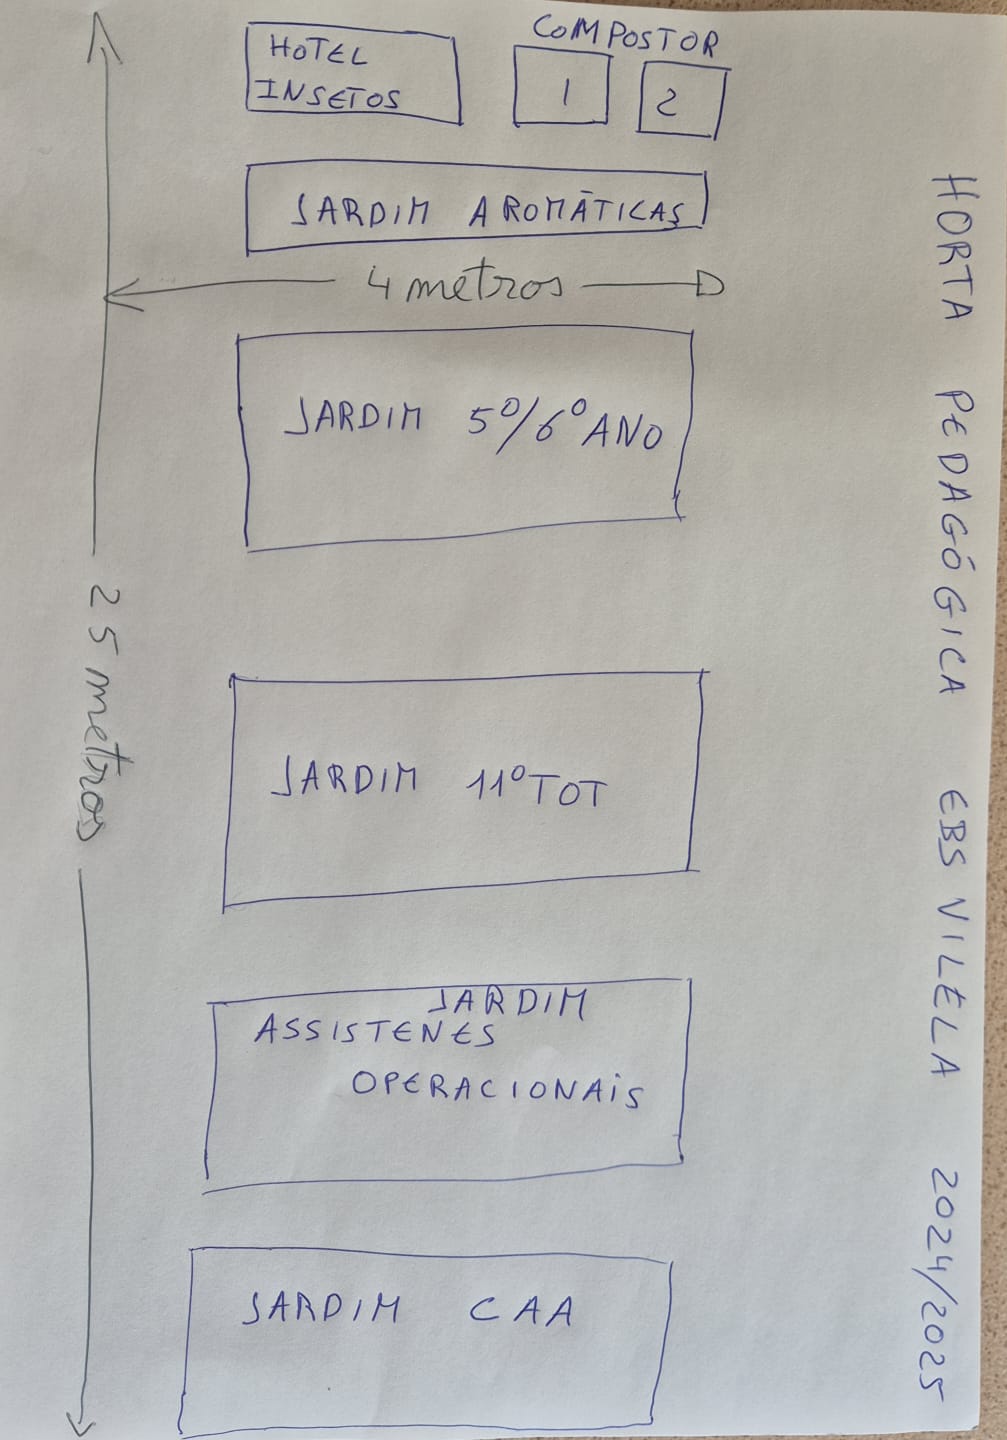 HOTEL
INSETOS
COMPOSTOR
1
2
JARDIM AROMÁTICAS
4 metros
JARDIM 5º/6º ANO
25 metros
JARDIM 11º TOT
JARDIM
ASSISTENES
OPERACIONAIS
JARDIM CAA
HORTA PEDAGÓGICA EBS VILELA 2024/2025